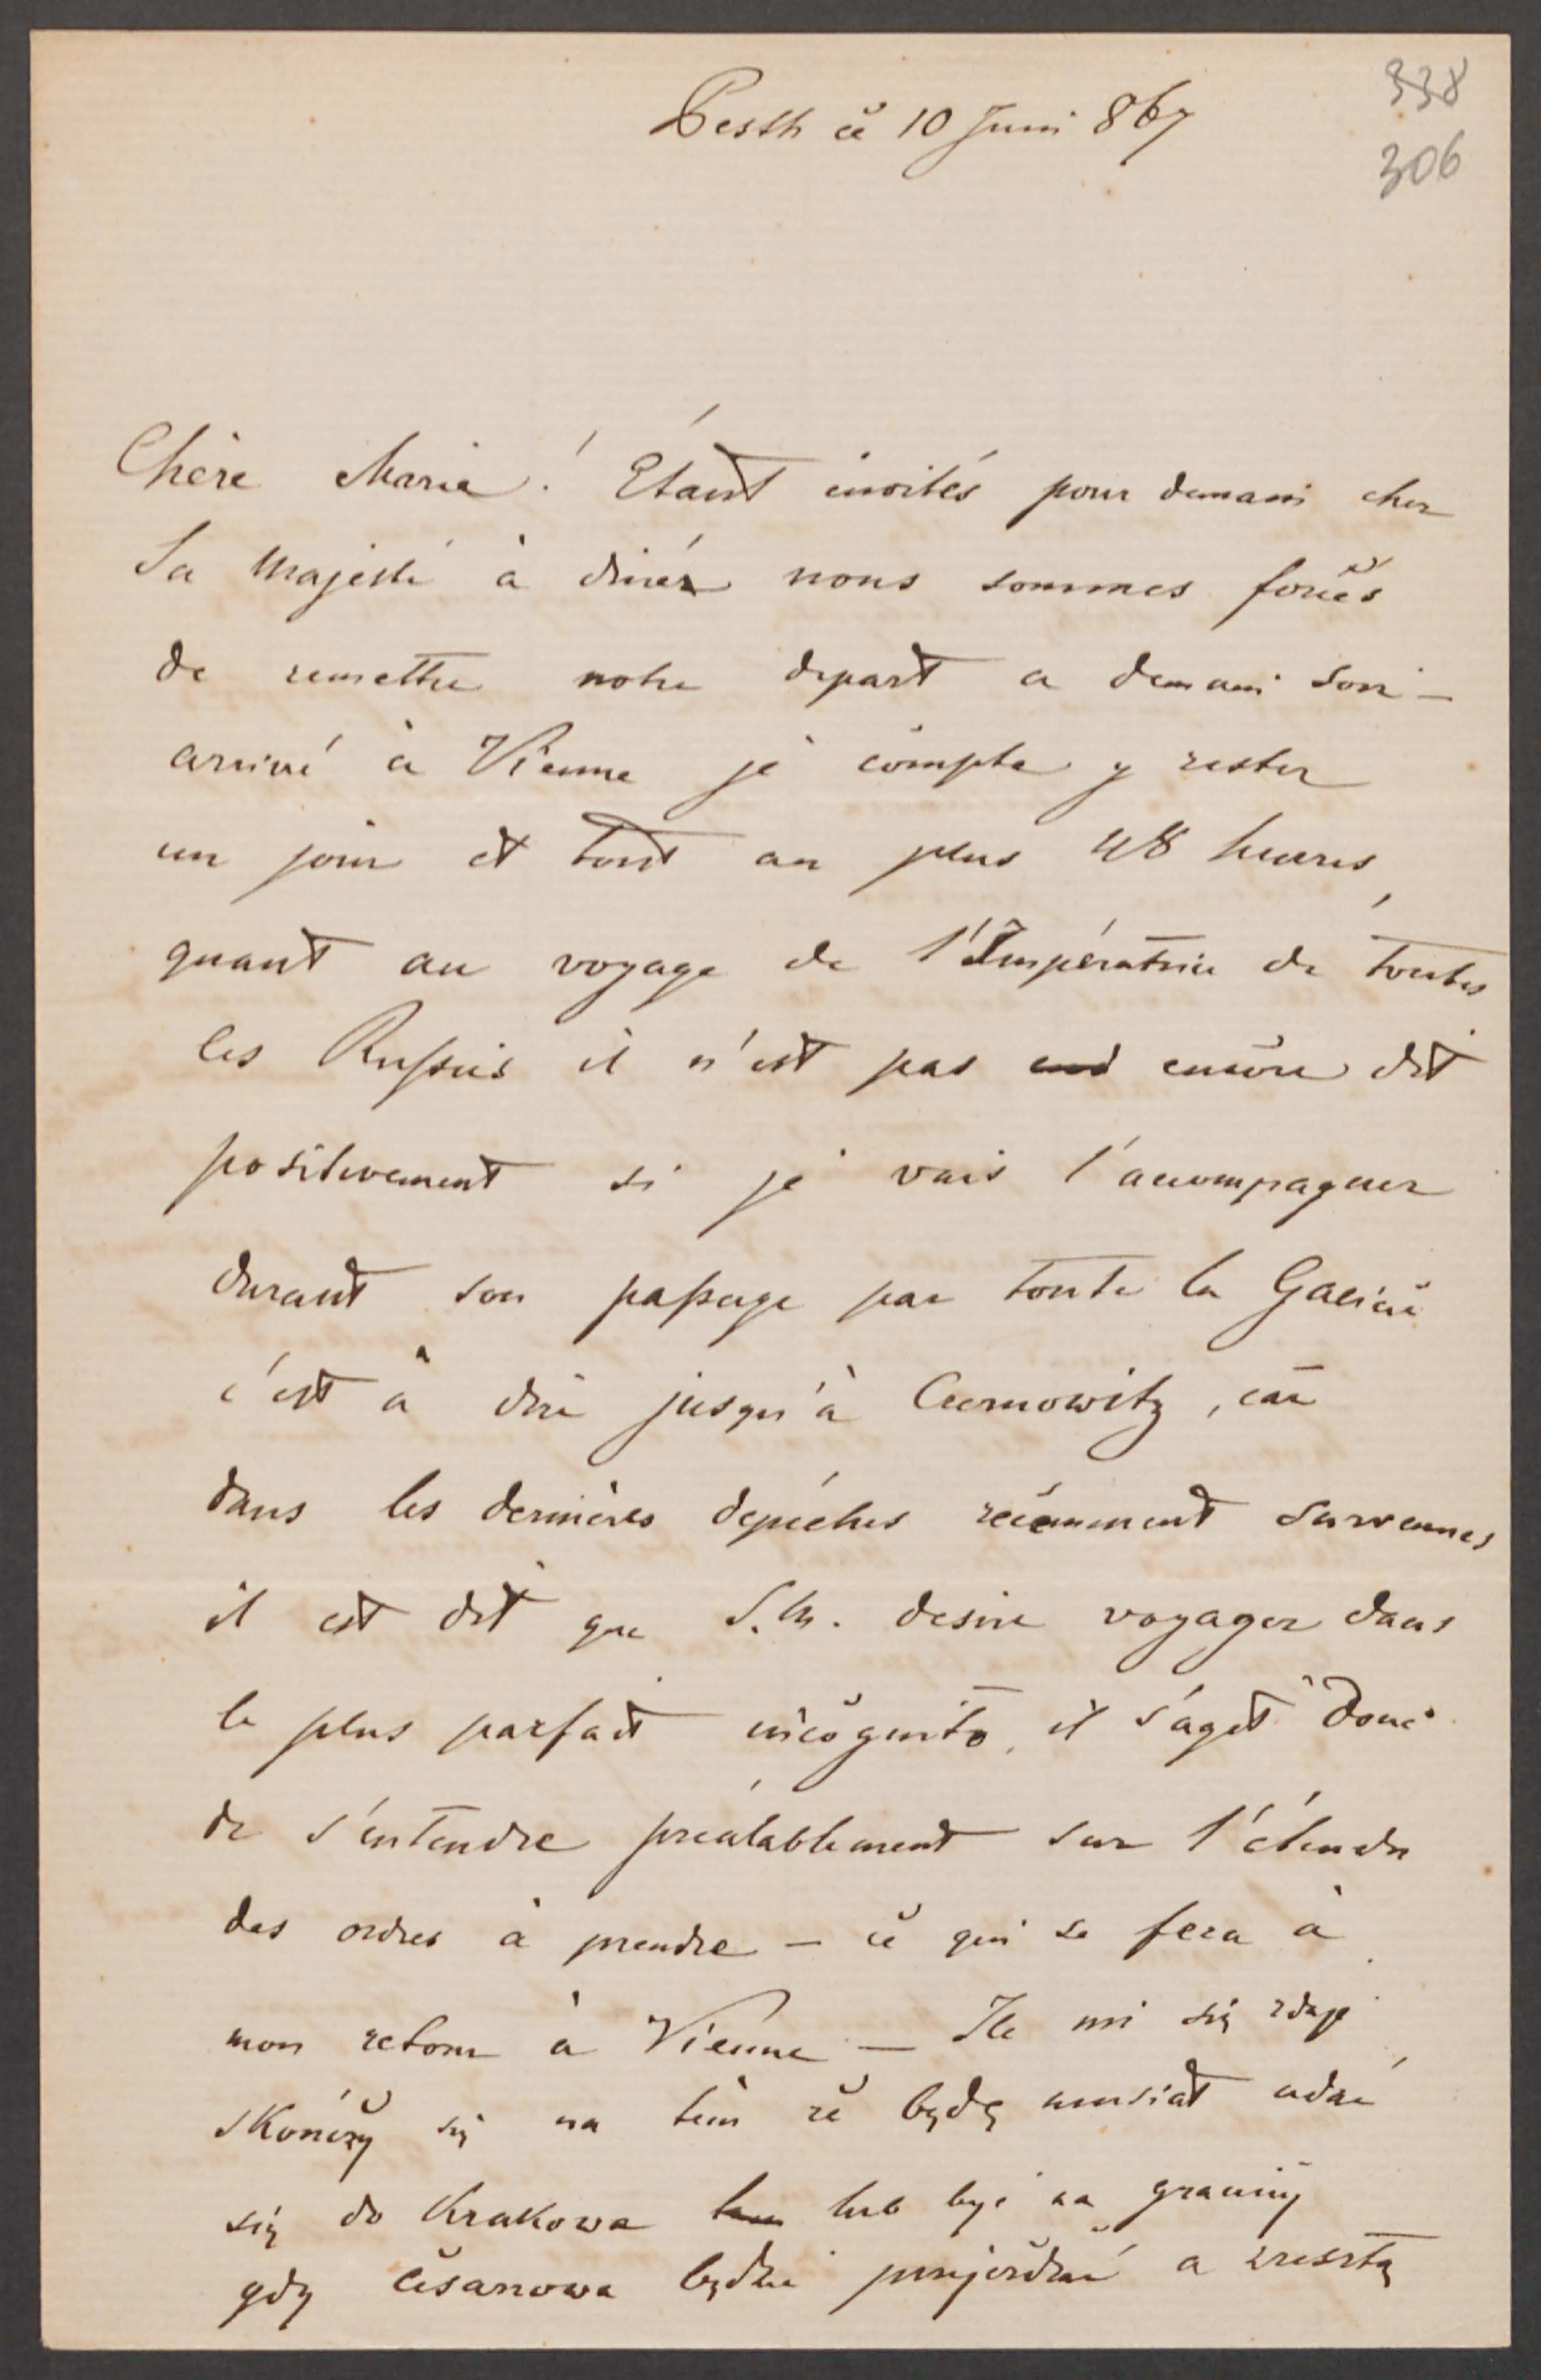 338
306
Pesth cě 10 Juni 867
Chère Marie! Étant invités pour demain chez
Sa Majesté à dinér nous sommes forcés
de remettre notre depart a demain soir –
arrivé à Vienne je compte y rester
un jour et tout au plus 48 heures,
quant au voyage de l'Impératrice de toutes
les Russies il n'est pas encore dit
positivement si je vais l'accompagner
durant son passage par toute la Galicie
c'est à dire jusqu'à Czernowitz, car
dans les dernières depéches récemment survenues
il est dit que S.M. desire voyager dans
le plus parfait incognito, il s'agit donc
de s'entendre préalablement sur l'étendu
des ordres à prendre – ce qui se fera à
mon retour à Vienne – Ile mi się zdaje
skończy się na tém że będę musiał udać
się do Krakowa lub być na granicy
gdy cesarzowa będzie przejeżdżać a zresztą